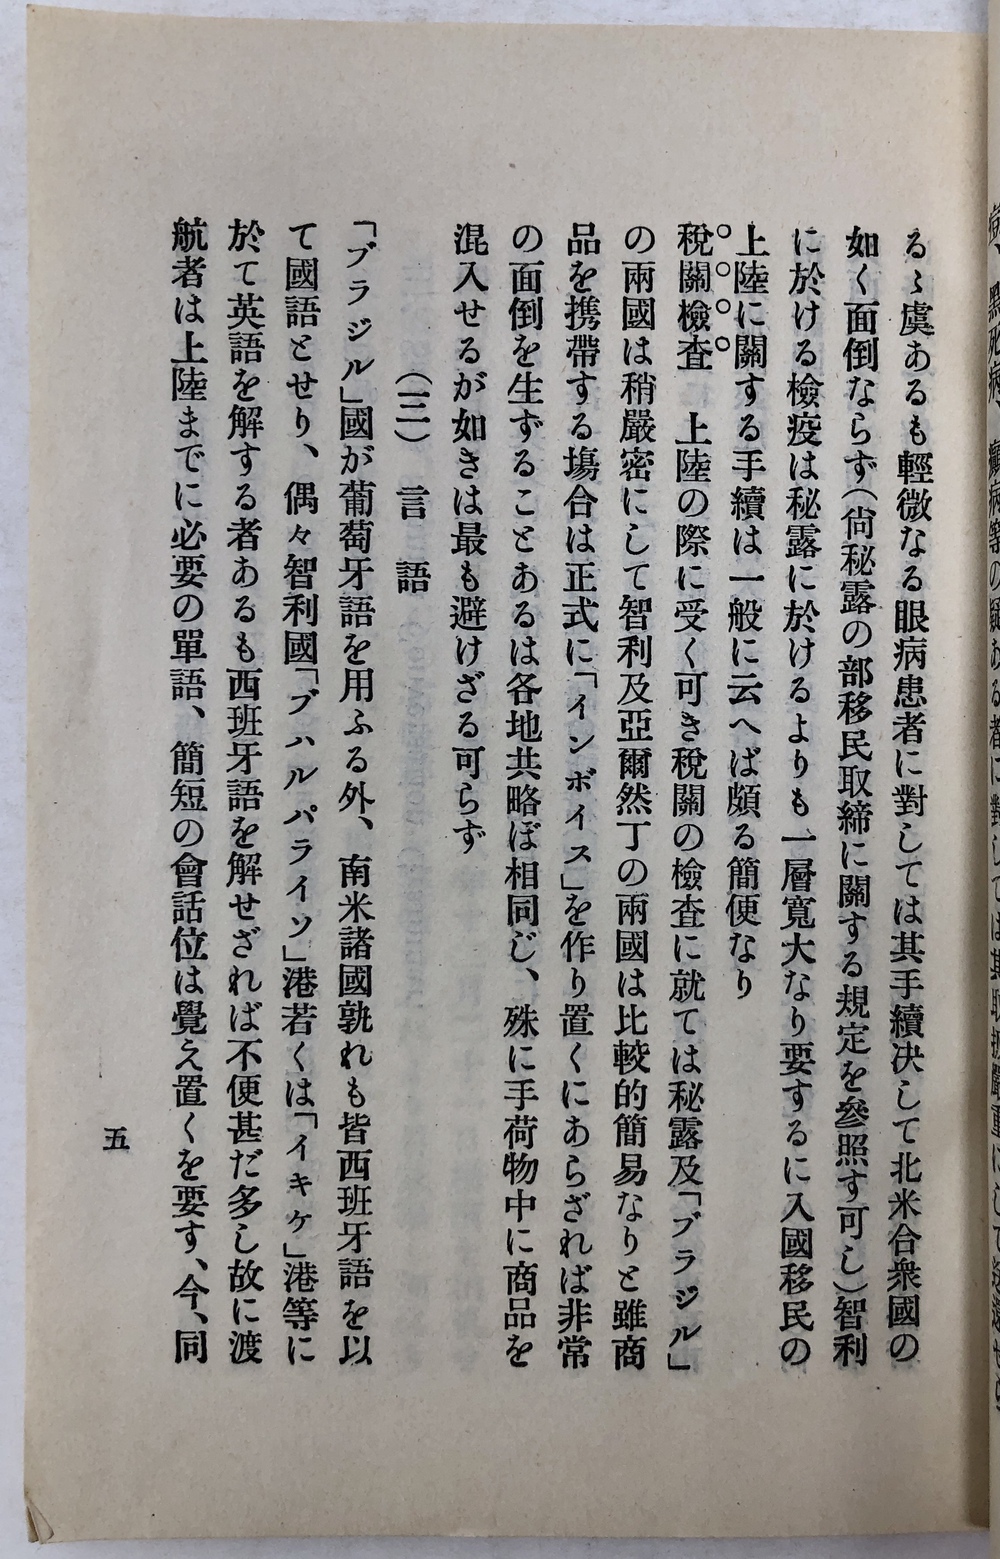 るゝ虞あるも輕微なる眼病患者に對しては其手續決して北米合衆國の
如く面倒ならず(尙秘露の部移民取締に關する規定を參照す可し)智利
に於ける檢疫は秘露に於けるよりも一層寬大なり要するに入國移民の
上陸に關する手續は一般に云へば頗る簡便なり
稅關檢査　上陸の際に受く可き稅關の檢査に就ては秘露及「ブラジル」
の兩國は稍嚴密にして智利及亞爾然丁の兩國は比較的簡易なりと雖商
品を携帶する塲合は正式に「インボイス」を作り置くにあらざれば非常
の面倒を生ずることあるは各地共略ぼ相同じ、殊に手荷物中に商品を
混入せるが如きは最も避けざる可らず
(三)　言　語
「ブラジル」國が葡萄牙語を用ふる外、南米諸國孰れも皆西班牙語を以
て國語とせり、偶々智利國「ブハルパライソ」港若くは「イキケ」港等に
於て英語を解する者あるも西班牙語を解せざれば不便甚だ多し故に渡
航者は上陸までに必要の單語、簡短の會話位は覺え置くを要す、今、同
五